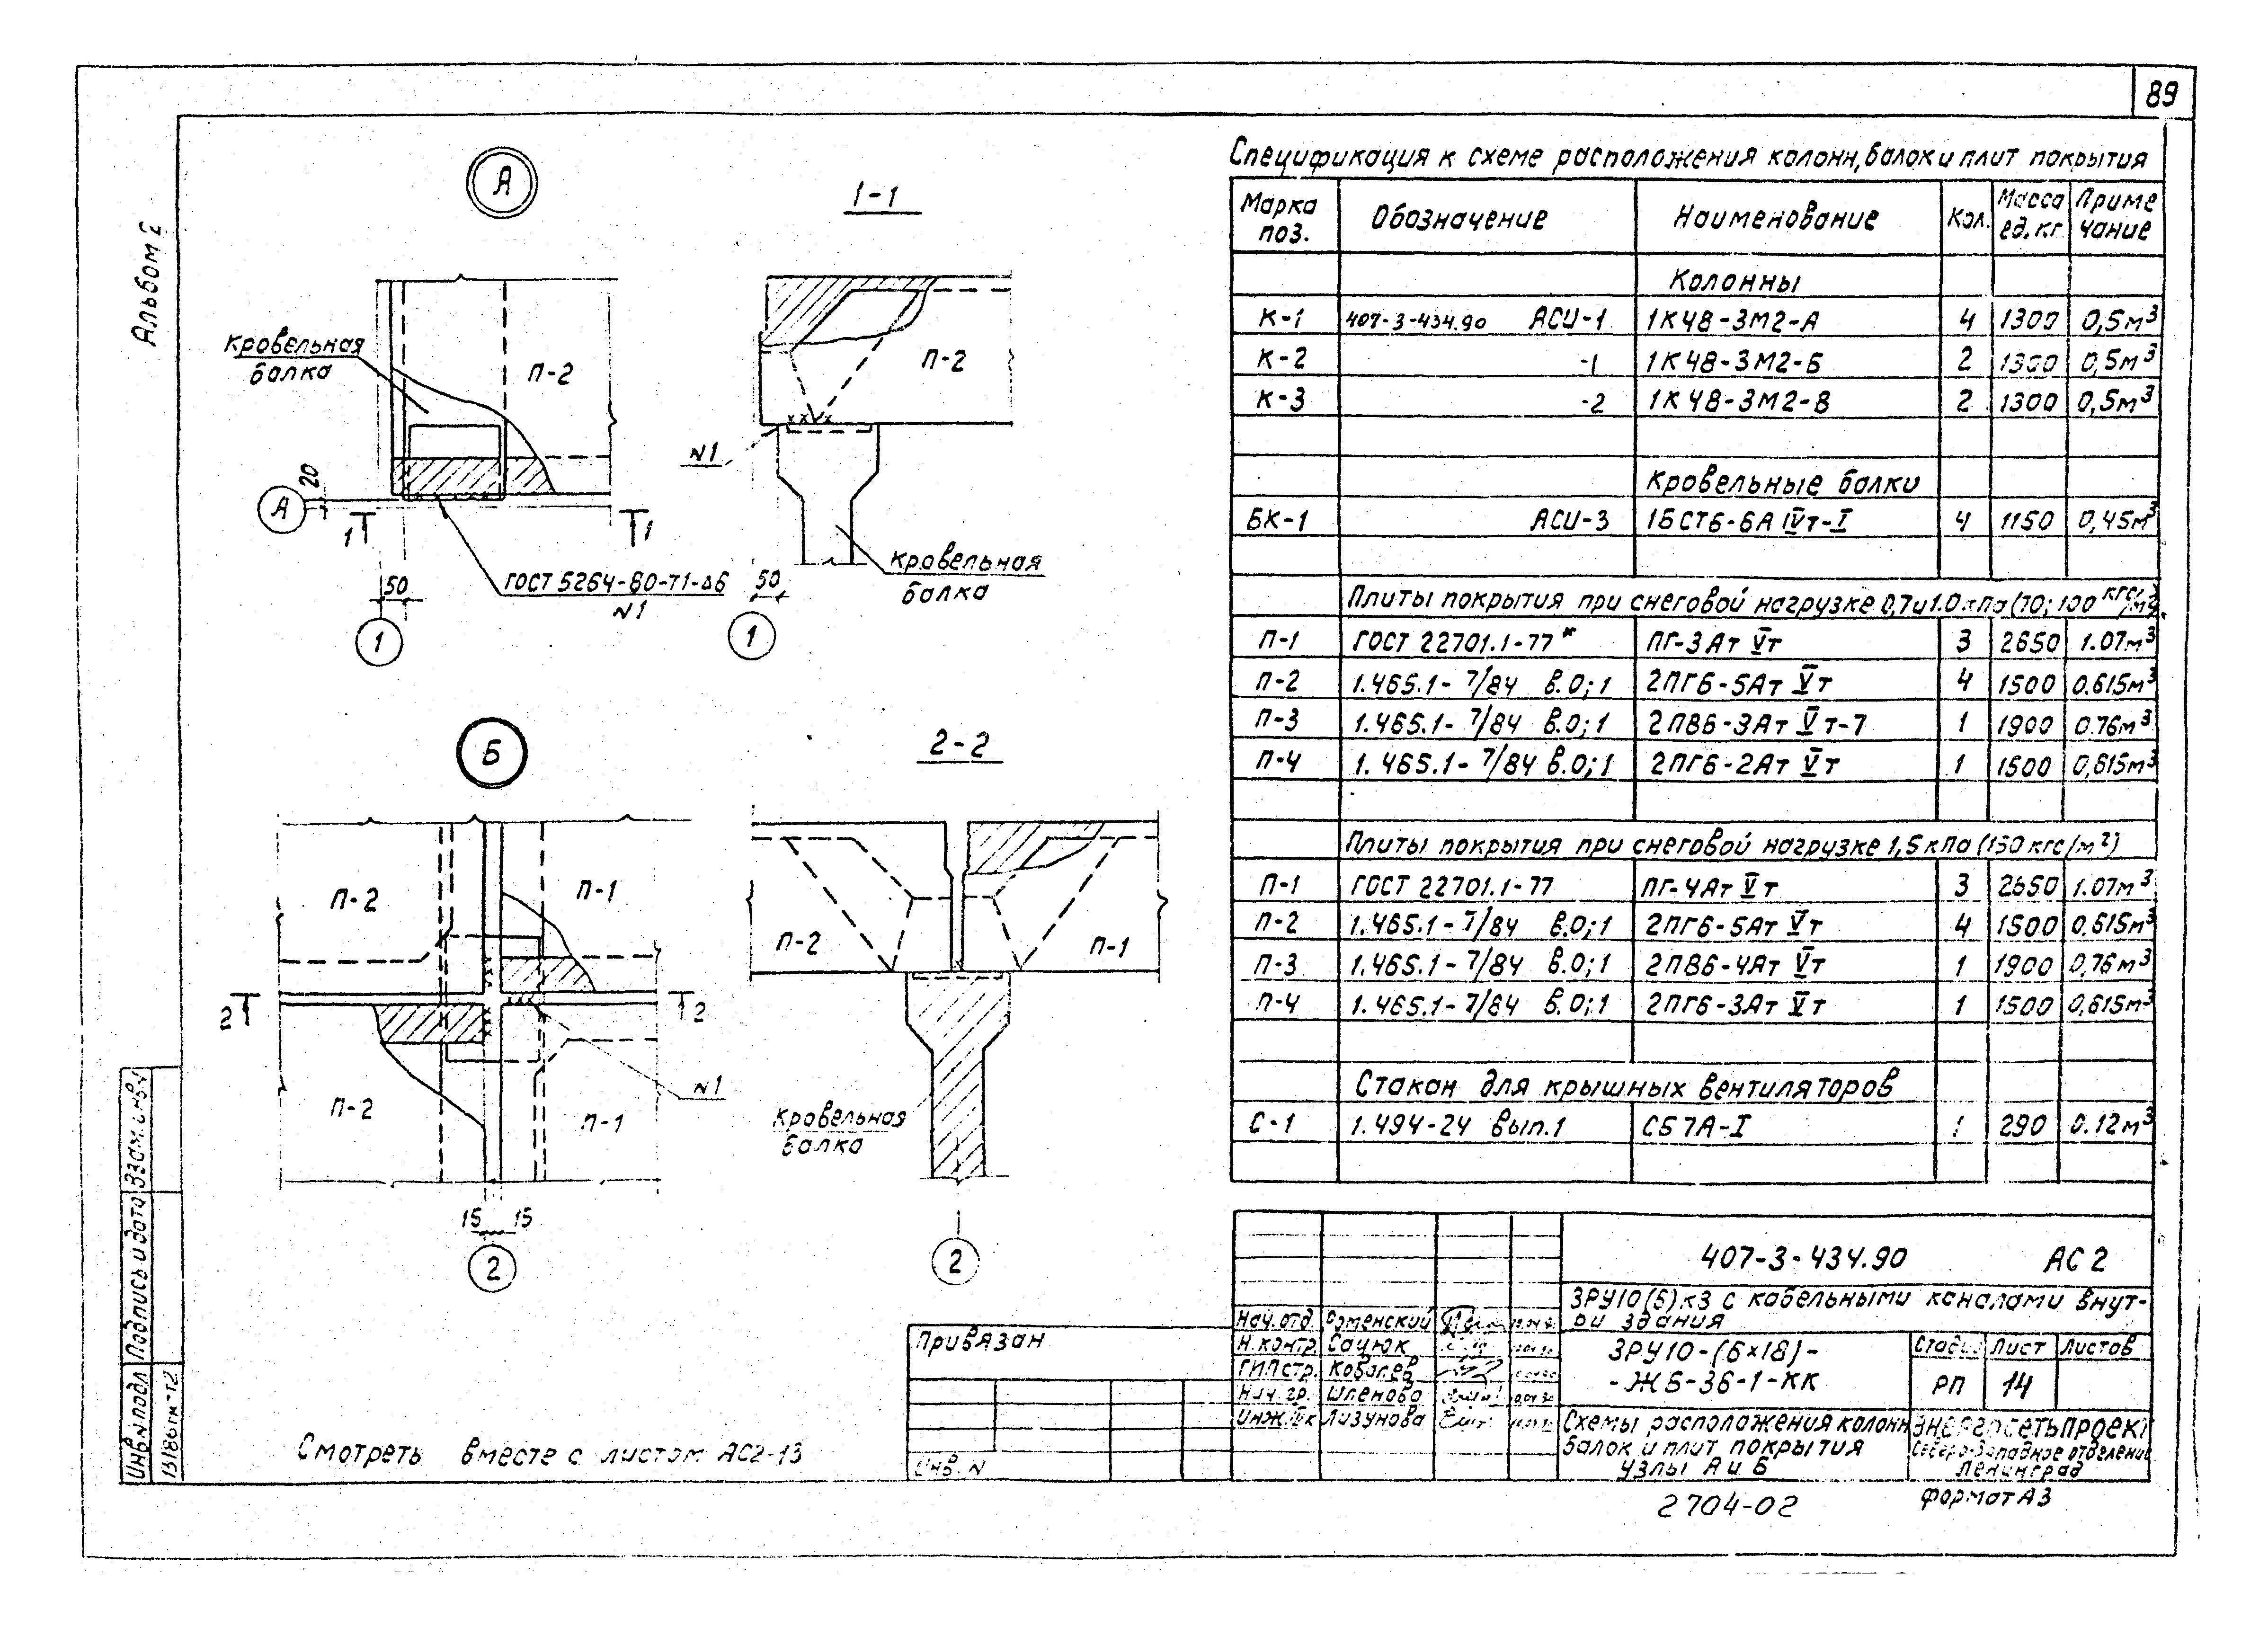 89
Альбом 2
А
1-1
Кровельная
балка
П-2
20
А
1 1
50
1
ГОСТ 5264-80-Т1-Δ6
N1
П-2
N1
Кровельная
балка
50
1
Б
2-2
П-2 П-1
2 2
П-2 П-1
N1
15 15
2
П-2 П-1
Кровельная
балка
2
Смотреть вместе с листом АС2-13
Спецификация к схеме расположения колонн, балок и плит покрытия
Марка поз. Обозначение Наименование Кол. Масса ед. кг Приме чание
Колонны
К-1 407-3-434.90 АСИ-1 1К48-3М2-А 4 1300 0,5м³
К-2 -1 1К48-3М2-Б 2 1300 0,5м³
К-3 -2 1К48-3М2-В 2 1300 0,5м³
Кровельные балки
БК-1 АСИ-3 1БСТ6-6А IVт-I 4 1150 0,45м³
Плиты покрытия при снеговой нагрузке 0,7 и 1.0 кПа (70; 100 кгс/м²)
П-1 ГОСТ 22701.1-77* ПГ-3Ат Vт 3 2650 1.07м³
П-2 1.465.1-7/84 в.0;1 2ПГ6-5Ат Vт 4 1500 0.615м³
П-3 1.465.1-7/84 в.0;1 2ПВ6-3Ат Vт-7 1 1900 0.76м³
П-4 1.465.1-7/84 в.0;1 2ПГ6-2Ат Vт 1 1500 0,615м³
Плиты покрытия при снеговой нагрузке 1,5 кПа (150 кгс/м²)
П-1 ГОСТ 22701.1-77 ПГ-4Ат Vт 3 2650 1.07м³
П-2 1.465.1-7/84 в.0;1 2ПГ6-5Ат Vт 4 1500 0.615м³
П-3 1.465.1-7/84 в.0;1 2ПВ6-4Ат Vт 1 1900 0,76м³
П-4 1.465.1-7/84 в.0;1 2ПГ6-3Ат Vт 1 1500 0,615м³
Стакан для крышных вентиляторов
С-1 1.494-24 вып.1 СБ7А-I 1 290 0.12м³
407-3-434.90 АС2
ЗРУ10(6)кЗ с кабельными каналами внут-
ри здания
Нач.отд. Роменский
Н.контр. Сацюк
ГИП стр. Ковалев
Нач.гр. Шленова
Инж. IIк Лизунова
ЗРУ10-(6×18)-
-ЖБ-36-1-КК
Стадия Лист Листов
РП 14
Схемы расположения колонн
балок и плит покрытия
Узлы А и Б
Энергосетьпроект
Северо-Западное отделение
Ленинград
Привязан
Инв. N
Инв.N подл. Подпись и дата Взам.инв.N
13186тм-т2
2704-02
Формат А3